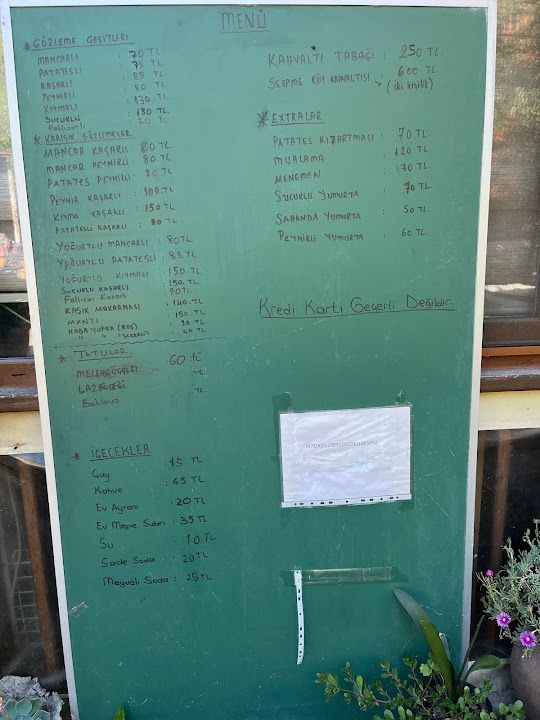 MENÜ
* GÖZLEME ÇEŞİTLERİ
MANCARLI : 70 TL
PATATESLİ : 75 TL
KAŞARLI : 85 TL
PEYNİRLİ : 80 TL
KIYMALI : 130 TL
SUCUKLU : 130 TL
Patlıcanlı 70 TL
* KARIŞIK GÖZLEMELER
MANCAR KAŞARLI : 80 TL
MANCAR PEYNİRLİ : 80 TL
PATATES PEYNİRLİ : 80 TL
PEYNİR KAŞARLI : 100 TL
KIYMA KAŞARLI : 150 TL
PATATESLİ KAŞARLI : 80 TL
YOĞURTLU MANCARLI : 80 TL
YOĞURTLU PATATESLİ : 85 TL
YOĞURTLU KIYMALI : 150 TL
SUCUKLU KAŞARLI : 150 TL
Patlıcan Kaşarlı 90 TL
KAŞIK MAKARNASI : 140 TL
MANTI : 150 TL
KABA YUFKA (BOŞ) : 30 TL
" " (ŞEKERLİ) : TL
* TATLILAR
MELENGÜCCEĞİ 60 TL
LAZ BÖREĞİ TL
Baklava TL
* İÇECEKLER
Çay 15 TL
Kahve : 45 TL
Ev Ayranı : 20 TL
Ev Meyve Suları : 35 TL
Su : 10 TL
Sade Soda : 20 TL
Meyvalı Soda : 25 TL
KAHVALTI TABAĞI : 250 TL.
SERPME KÖY KAHVALTISI : 600 TL.
(iki kişilik)
* EXTRALAR
PATATES KIZARTMASI : 70 TL.
MUHLAMA : 120 TL.
MENEMEN : 170 TL.
SUCUKLU YUMURTA : 70 TL.
SAHANDA YUMURTA : 50 TL.
PEYNİRLİ YUMURTA : 60 TL.
Kredi Kartı Geçerli Değildir.